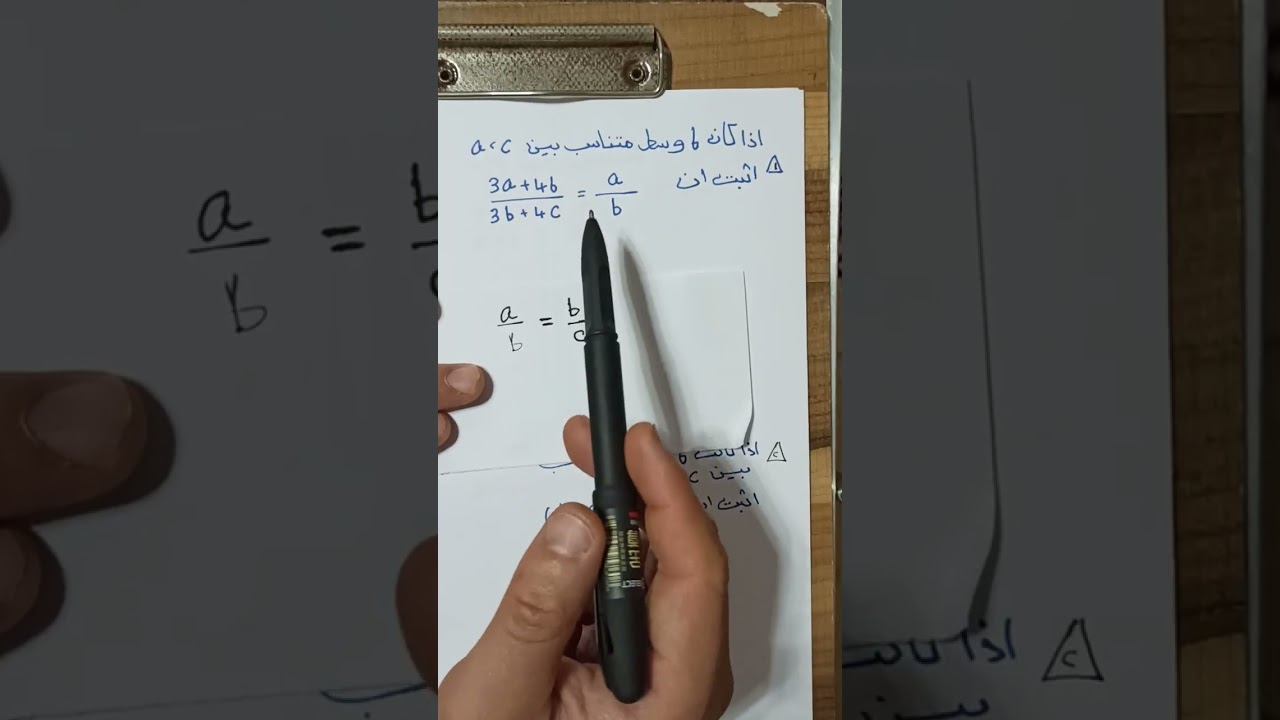 اذا كانت b وسط متناسب بين a، c
1 اثبت ان
3a+4b / 3b+4c = a / b
a / b = b / c
اذا كانت b
بين c
اثبت